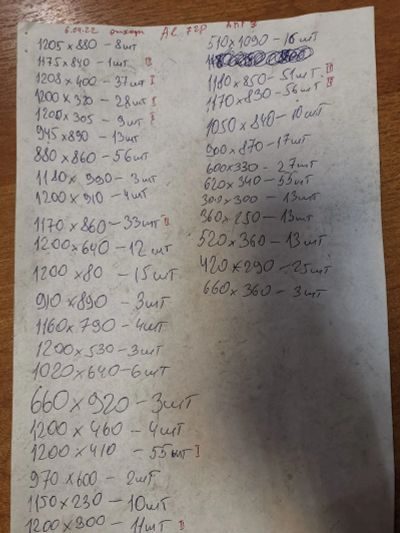 6.04.22 отходы Al 72р
1205 x 880 - 8шт
1175 x 840 - 1шт II
1208 x 400 - 37шт I
1200 x 320 - 28шт I
1200 x 305 - 9шт I
945 x 890 - 13шт
880 x 860 - 56шт
1180 x 990 - 3шт
1200 x 910 - 4шт
1170 x 860 - 33шт II
1200 x 640 - 12шт
1200 x 80 - 15шт
910 x 890 - 3шт
1160 x 790 - 4шт
1200 x 530 - 3шт
1020 x 640 - 6шт
660 x 920 - 3шт
1200 x 460 - 4шт
1200 x 410 - 55шт I
970 x 600 - 2шт
1150 x 230 - 10шт
1200 x 300 - 11шт II
510 x 1090 - 16шт
1180 x 850 - 51шт III
1170 x 830 - 56шт II
1050 x 840 - 10шт
900 x 870 - 17шт
600 x 330 - 27шт
620 x 340 - 55шт
300 x 300 - 13шт
360 x 250 - 13шт
520 x 360 - 13шт
420 x 290 - 25шт
660 x 360 - 3шт